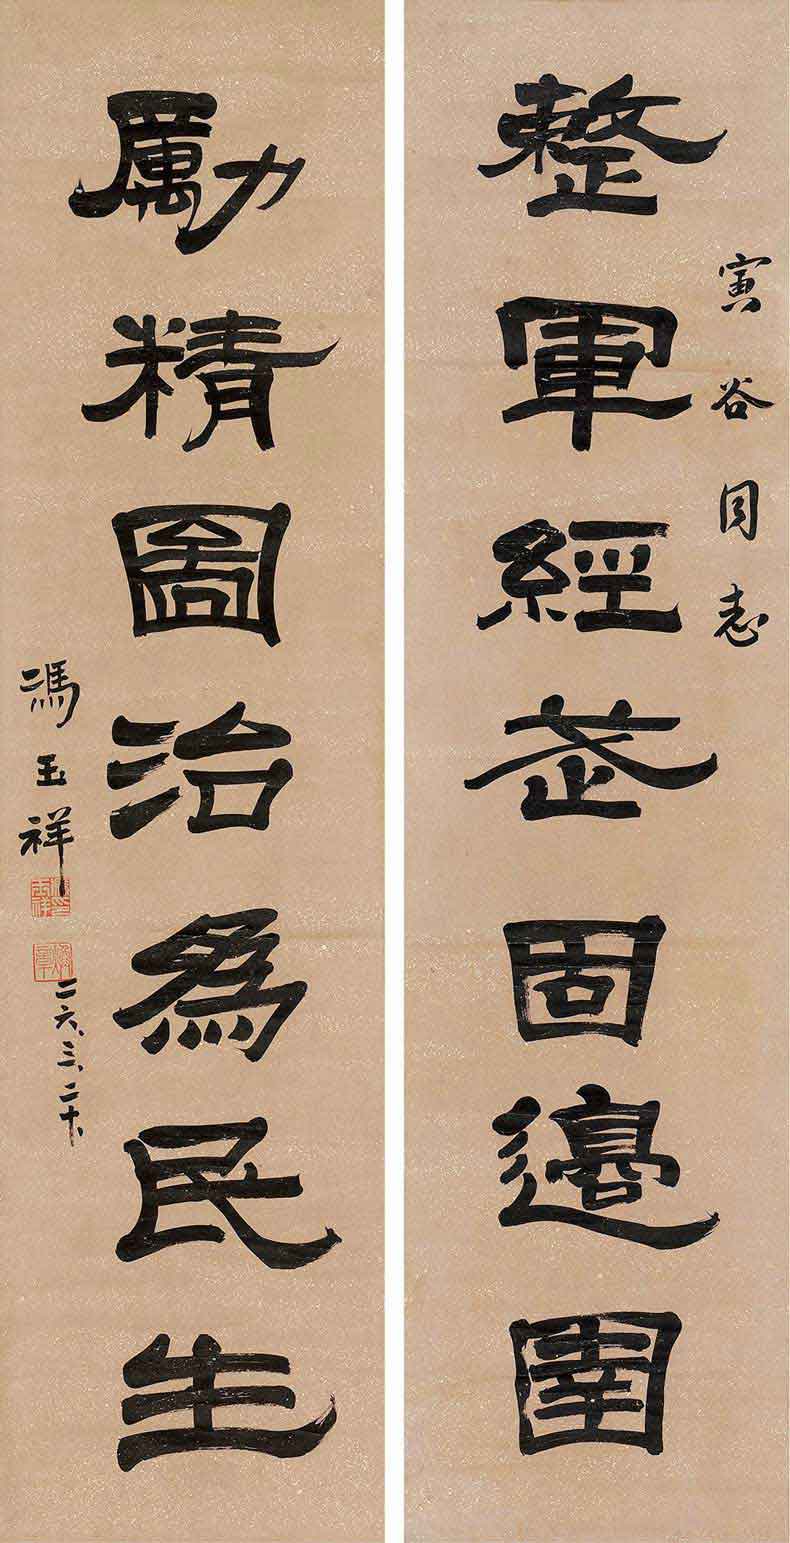 寅谷同志
整軍經武固邊圉
勵精圖治爲民生
馮玉祥
二六、三、二十、